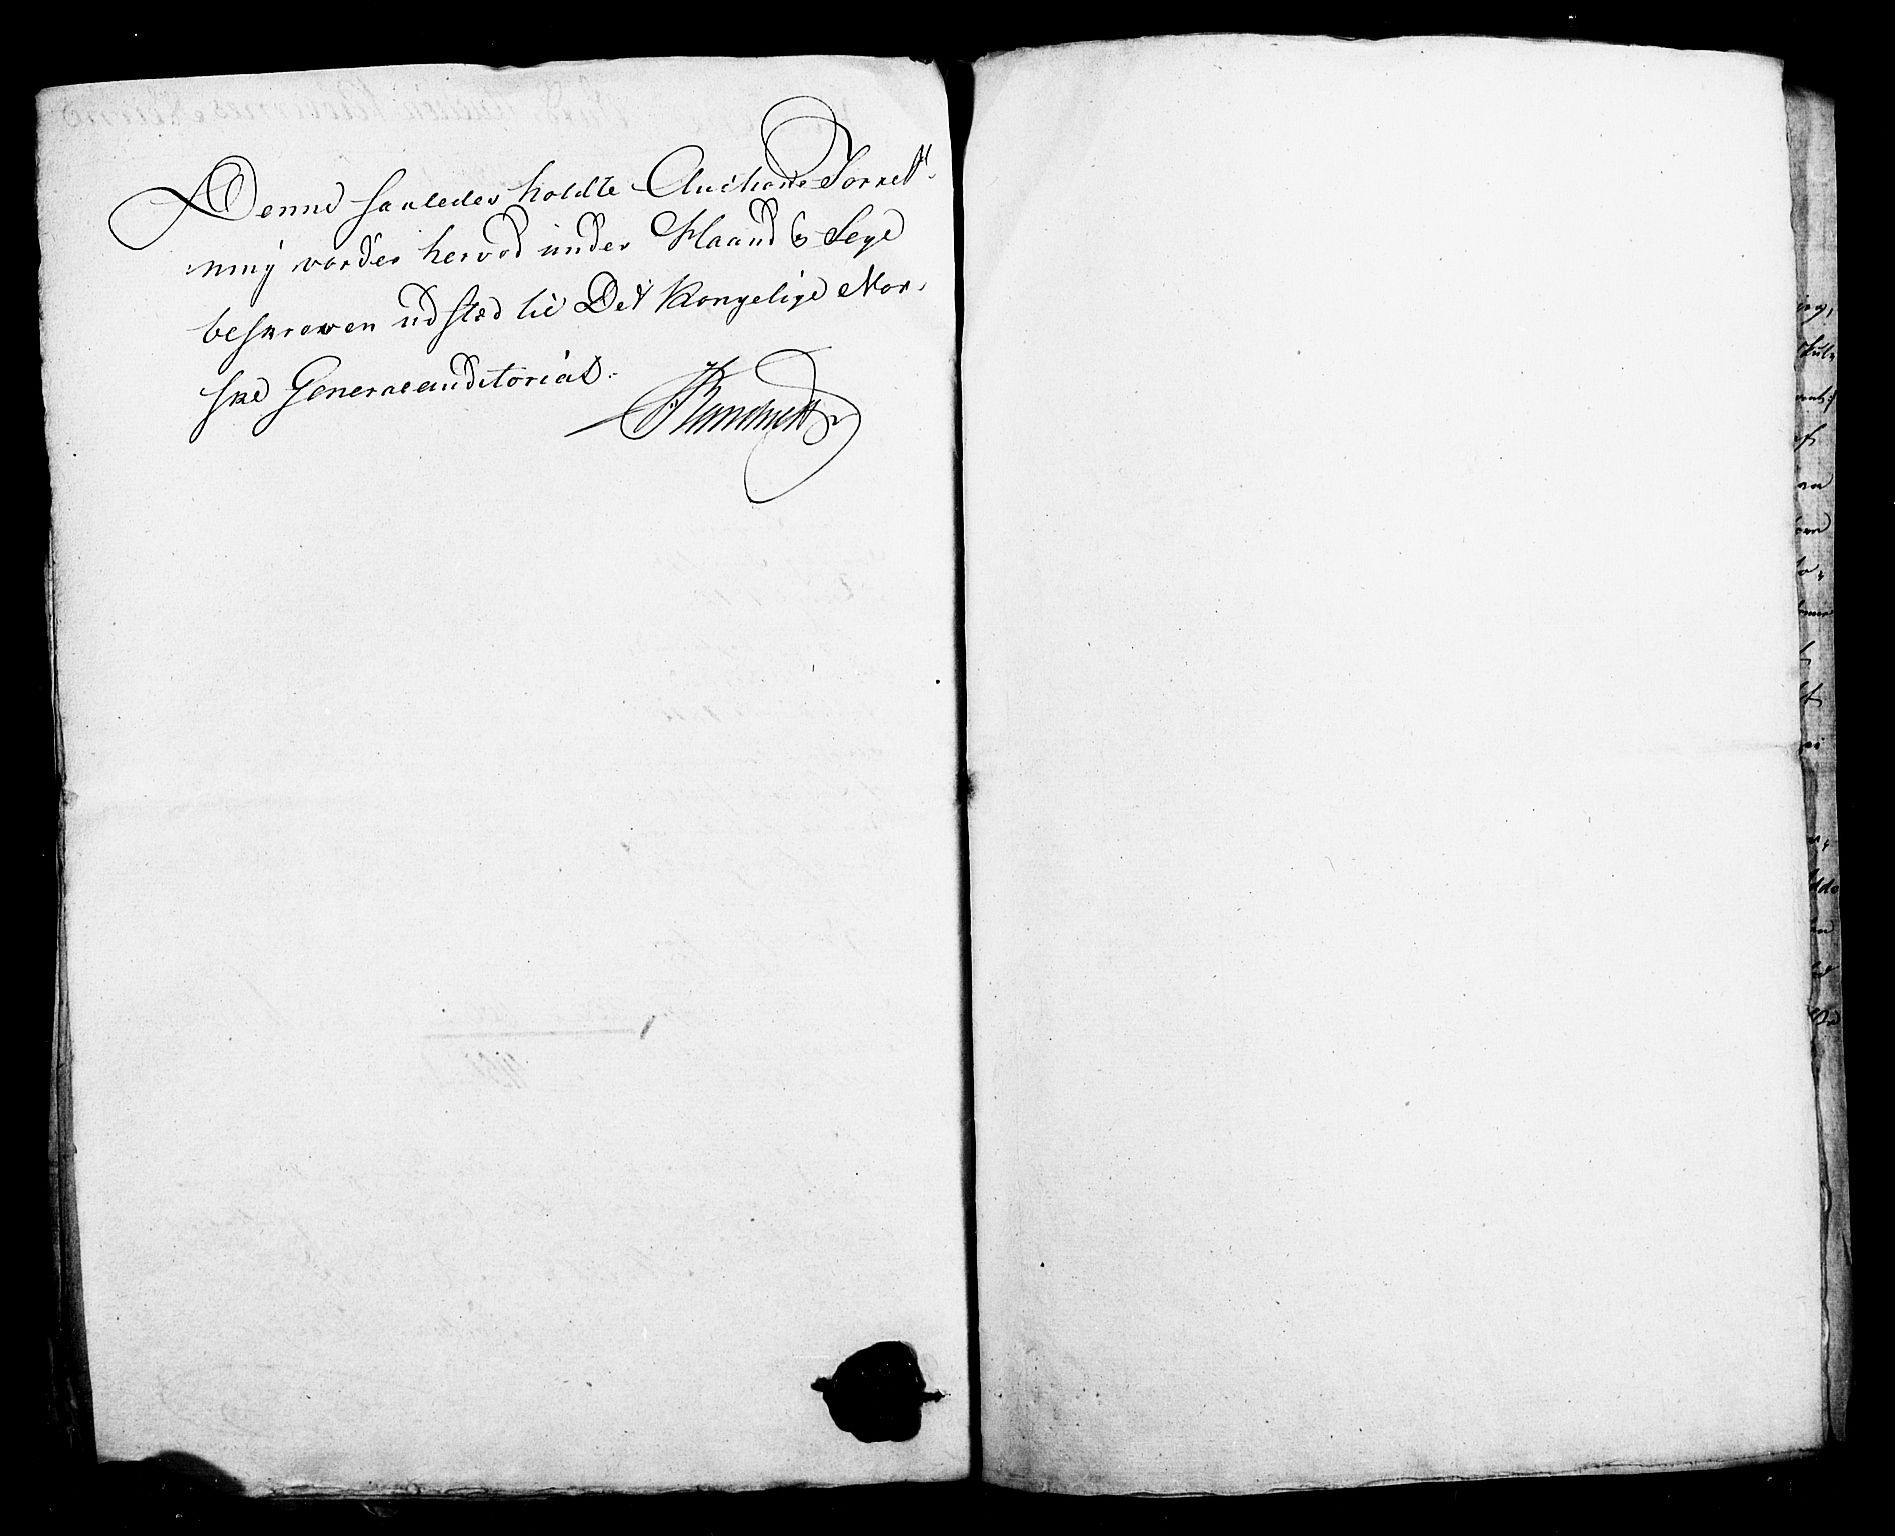 Denne saaledes holdte Auctions Forret-
ning vorder herved under Haand & Segl
beskreven udstæd til Det Kongelige Nor-
ske Generalauditoriat.